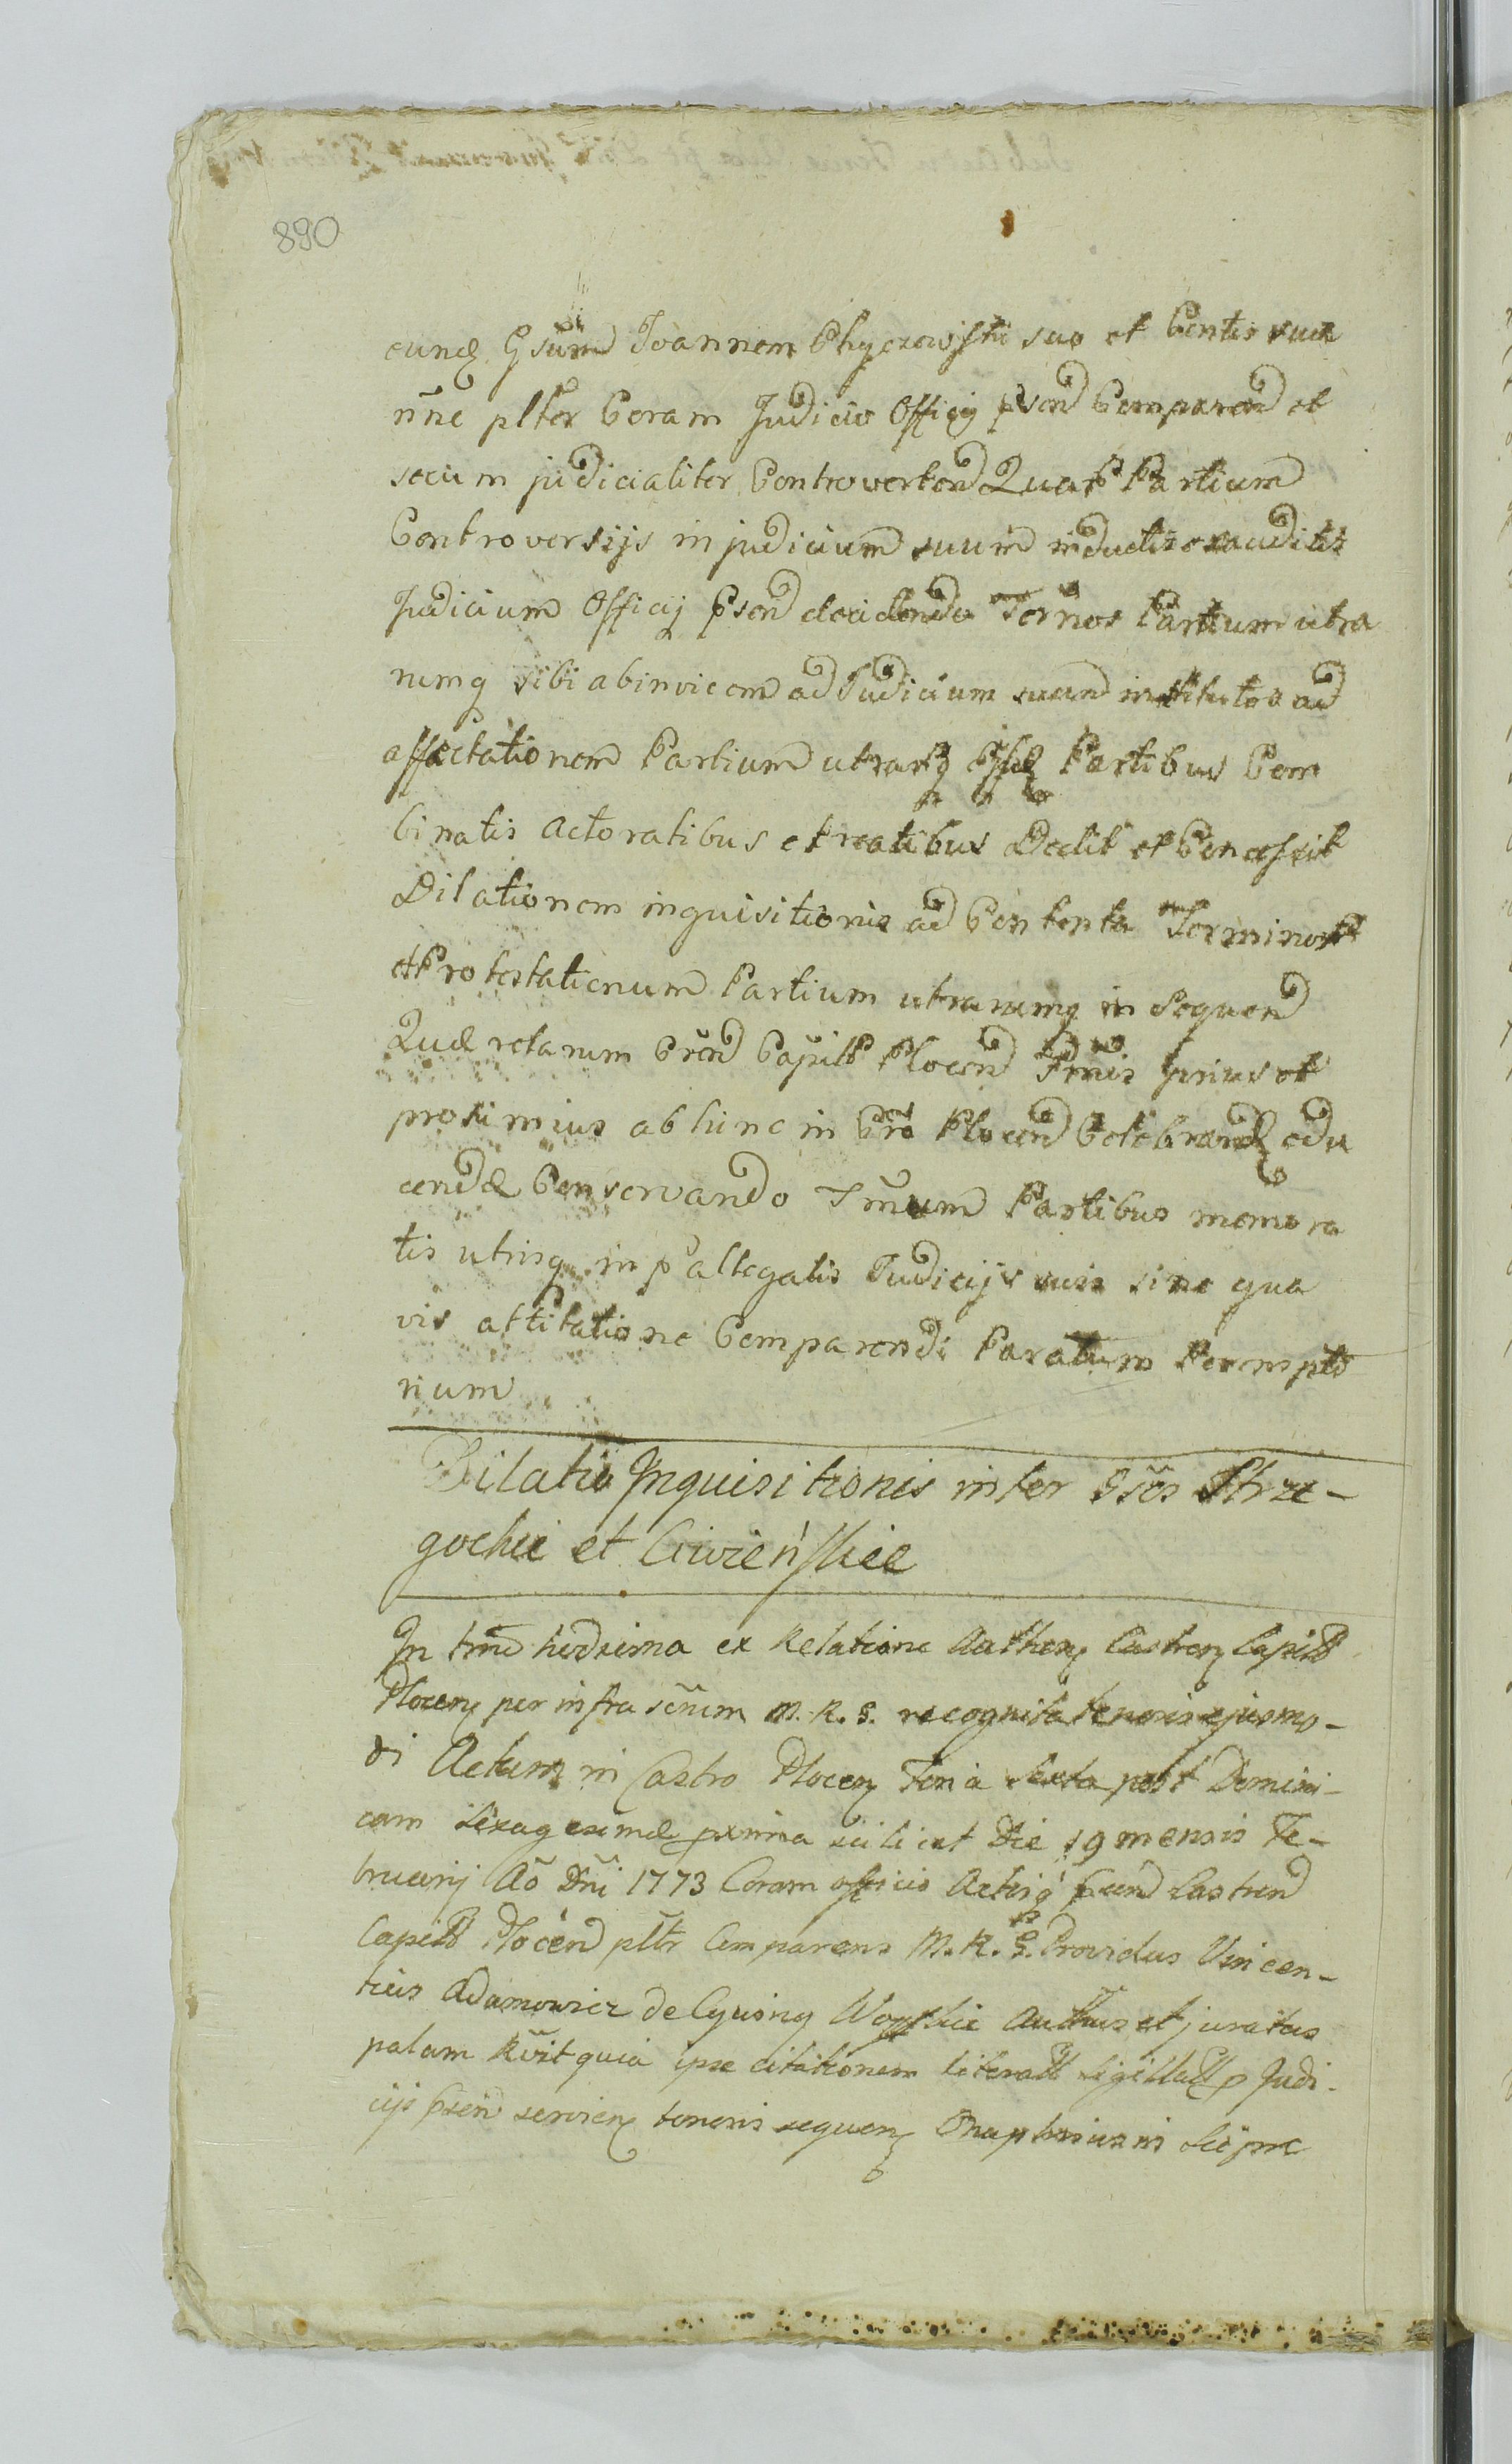 890
eund Gsum Joannem Chyczewski suo et Contis suæ
nñe plter Coram Judicio Officij psend Comparend et
secum judicialiter Controvertend Quar Partium
Controversijs in judicium suum inductis exauditis
Judicium Officij Psend decidendo Termos Partium utra
rumq sibi abinvicem ad Judicium suum institutos ad
affectationem Partium utrarq Partibus Com
binatis actoratibus et reatibus Dedit et Concessit
Dilationem inquisitionis ad Contenta Terminor
et Protestationum Partium utrarumq in Sequend
Quærelarum Cren Capitt Plocend Tmis prius et
proximius abhinc in Cro Plocend Celebrand edu
cendæ Conservando Tmum Partibus memora
tis utrisq in p allegatis Judicijs suis sine qua
vis attitatione Comparendi Paratum Perempto
rium
Dilatio Inquisitionis inter Gsos Strze-
gockie et Ciwieńskie
In tmo hodierno ex Relatione Authen Castren Capitt
Plocen per infra scrium M. R. G. recognita tenoris ejusmo-
di Actum in Castro Plocen Feria Sexta post Domini-
cam Sexagesimæ proxima scilicet Die 19 mensis Fe-
bruarij Ao Dni 1773 Coram officio Actisq psend Castrend
Capitt Plocend pltr Comparens M. R. G. Providus Vincen-
tius Adamowicz de Cyving Authus et juratus
palam Rvit quia ipse citationem literatt sigillatt p Judi-
cijs psen servien tenoris sequen Onuphrius in